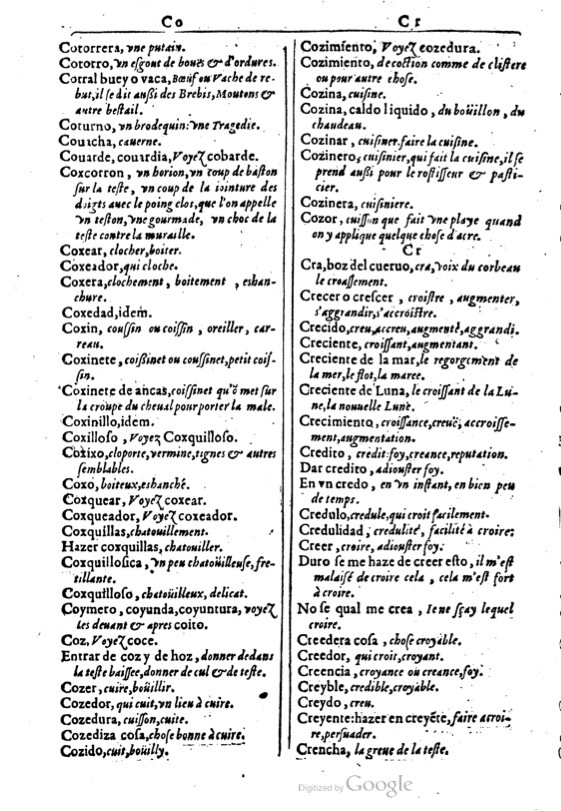 Co
Cotorrera, vne putain.
Cotorro, vn esgout de bouës & d'ordures.
Cotral buey o vaca, Bœuf ou Vache de re-
but, il se dit außi des Brebis, Moutons &
autre bestail.
Coturno, vn brodequin: vne Tragedie.
Couacha, cauerne.
Couarde, couardia, Voyez cobarde.
Coxcorron, vn horion, vn coup de baston
sur la teste, vn coup de la iointure des
doigts auec le poing clos, que l'on appelle
vn teston, vne gourmade, vn choc de la
teste contre la muraille.
Coxear, clocher, boiter.
Coxeador, qui cloche.
Coxera, clochement, boitement, eshan-
chure.
Coxedad, idem.
Coxin, coussin ou coissin, oreiller, car-
reau.
Coxinete, coißinet ou coussinet, petit cois-
sin.
Coxinete de ancas, coissinet qu'õ met sur
la croupe du cheual pour porter la male.
Coxinillo, idem.
Coxilloso, Voyez Coxquilloso.
Coxixo, cloporte, vermine, tignes & autres
semblables.
Coxo, boiteux, eshanché.
Coxquear, Voyez coxear.
Coxqueador, Voyez coxeador.
Coxquillas, chatouillement.
Hazer coxquillas, chatouiller.
Coxquillosica, vn peu chatoüilleuse, fre-
tillante.
Coxquilloso, chatoüilleux, delicat.
Coymero, coyunda, coyuntura, voyez
les deuant & apres coito.
Coz, Voyez coce.
Entrar de coz y de hoz, donner dedans
la teste baissee, donner de cul & de teste.
Cozer, cuire, boüillir.
Cozedor, qui cuit, vn lieu à cuire.
Cozedura, cuisson, cuite.
Cozediza cosa, chose bonne à cuire.
Cozido, cuit, boüilly.
Cr
Cozimiento, Voyez cozedura.
Cozimiento, decoction comme de clistere
ou pour autre chose.
Cozina, cuisine.
Cozina, caldo liquido, du boüillon, du
chaudeau.
Cozinar, cuisiner, faire la cuisine.
Cozinero, cuisinier, qui fait la cuisine, il se
prend außi pour le rostisseur & pasti-
cier.
Cozinera, cuisiniere.
Cozor, cuisson que fait vne playe quand
on y applique quelque chose d'acre.
Cr
Cra, boz del cueruo, cra, voix du corbeau
le croassement.
Crecer o crescer, croistre, augmenter,
s'aggrandir, s'accroistre.
Crecido, creu, accreu, augmenté, aggrandi.
Creciente, croissant, augmentant.
Creciente de la mar, le regorgement de
la mer, le flot, la maree.
Creciente de Luna, le croissant de la Lu-
ne, la nouuelle Lune.
Crecimiento, croissance, creuë, accroisse-
ment, augmentation.
Credito, credit: foy, creance, reputation.
Dar credito, adiouster foy.
En vn credo, en vn instant, en bien peu
de temps.
Credulo, credule, qui croit facilement.
Credulidad, credulité, facilité à croire:
Creer, croire, adiouster foy.
Duro se me haze de creer esto, il m'est
malaisé de croire cela, cela m'est fort
à croire.
No se qual me crea, Ie ne sçay lequel
croire.
Creedera cosa, chose croyable.
Creedor, qui croit, croyant.
Creencia, croyance ou creance, foy.
Creyble, credible, croyable.
Creydo, creu.
Creyente: hazer en creyẽte, faire acroi-
re, persuader.
Crencha, la greue de la teste.
Digitized by Google